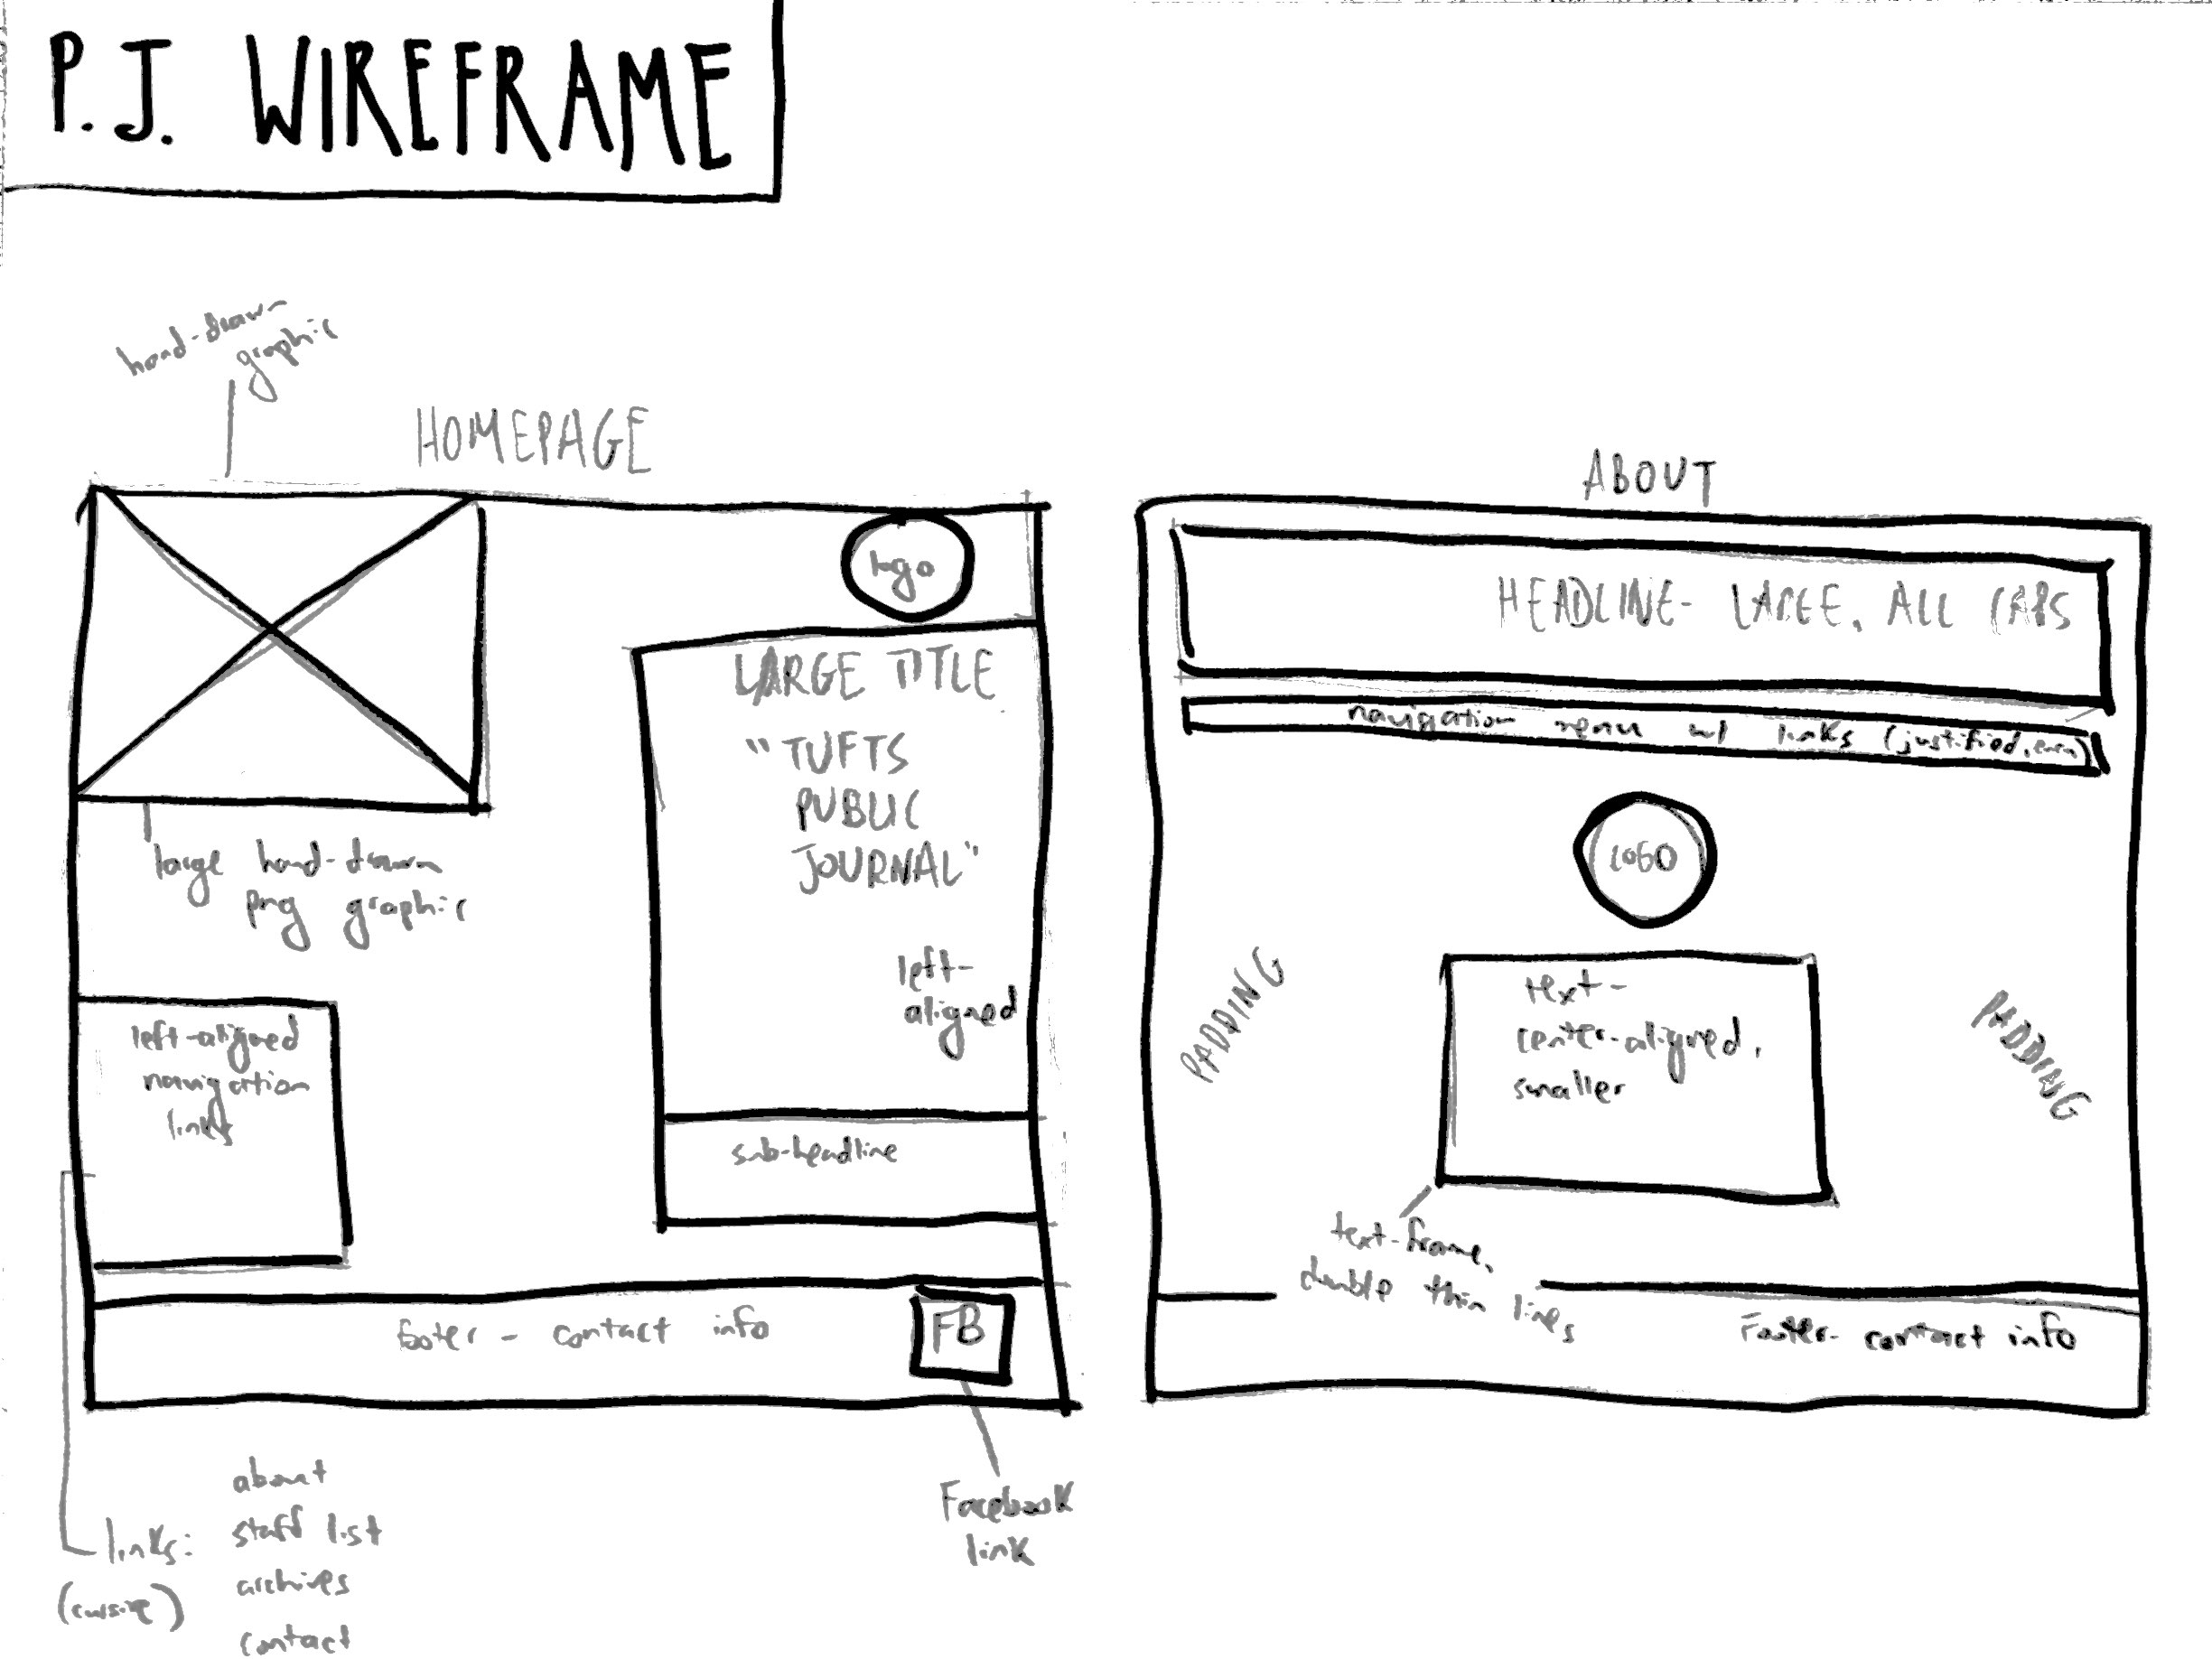 P.J. WIREFRAME
hand-draw-
graphic
HOMEPAGE
logo
LARGE TITLE
"TUFTS
PUBLIC
JOURNAL"
left-
aligned
sub-headline
large hand-drawn
png graphic
left-aligned
navigation
links
footer - contact info
FB
Facebook
link
links:
(cursive)
about
staff list
archives
contact
ABOUT
HEADLINE- LARGE, ALL CAPS
navigation menu w/ links (justified, even)
LOGO
PADDING
text-
center-aligned,
smaller
PADDING
text-frame,
double thin lines
Footer- contact info